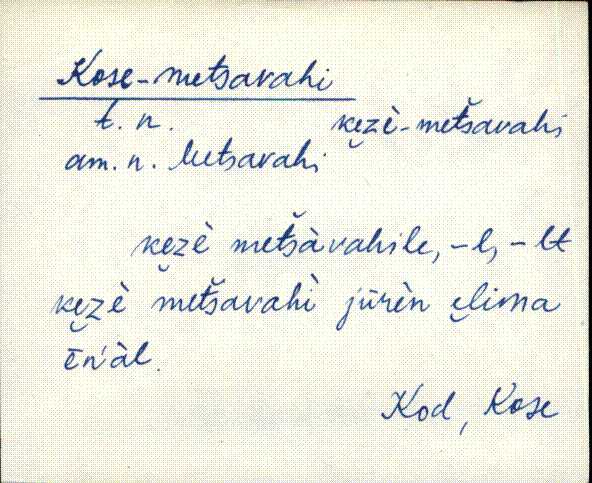 Kose-metsavahi
t. n. kęzè-metšavahi
am. n. Metsavahi
kęzè metšàvahile, -l, -lt
kęzè metšavahì jūrèn ęlima
ēn'àl.
Kod, Kose